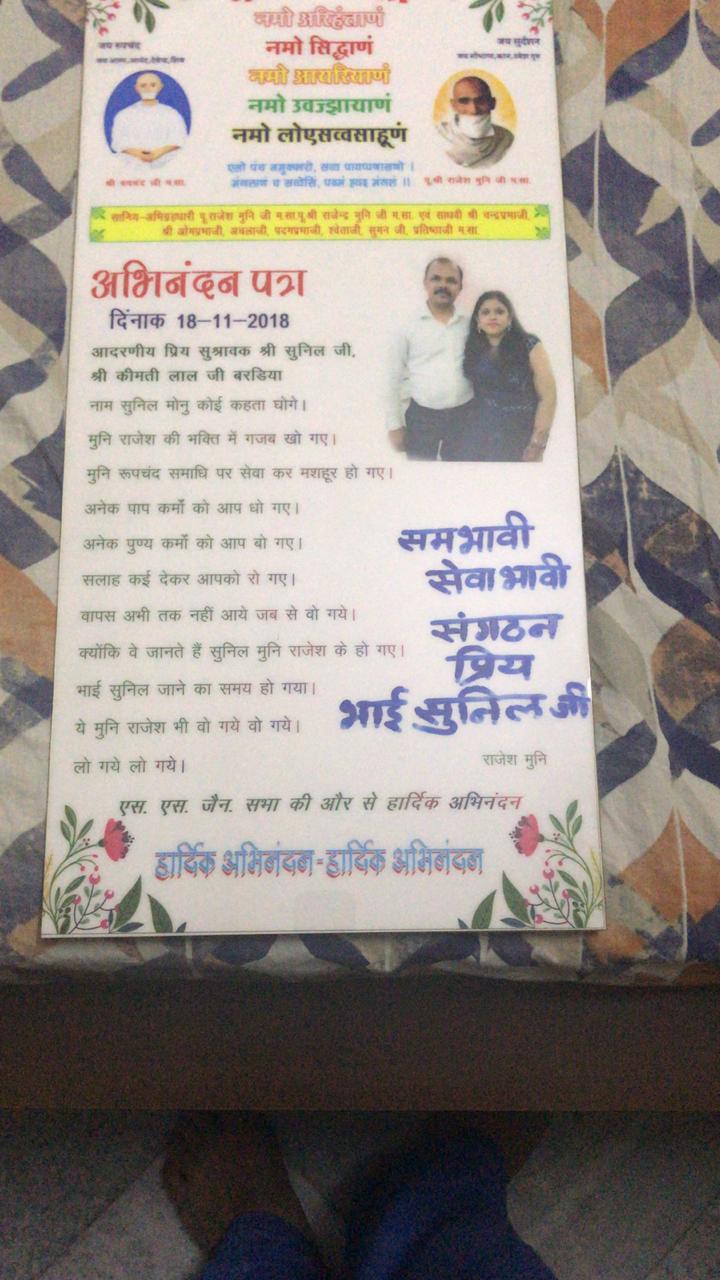 नमो अरिहंताणं
जय रुपचंद
जय सुदर्शन
नमो सिद्धाणं
नमो आयरियाणं
नमो उवज्झायाणं
नमो लोएसव्वसाहूणं
एसो पंच नमुक्कारो, सव्व पावप्पणासणो ।
मंगलाणं च सव्वेसिं, पढमं हवइ मंगलं ।।
श्री रुपचंद जी म.सा.
पू.श्री राजेश मुनि जी म.सा.
सानिध्य-अभिग्रहधारी पू.राजेश मुनि जी म.सा.पू.श्री राजेन्द्र मुनि जी म.सा. एवं साधवी श्री चन्द्रप्रभाजी,
श्री ओमप्रभाजी, अचलाजी, पदमप्रभाजी, श्वेताजी, सुमन जी, प्रतिष्ठाजी म.सा.
अभिनंदन पत्र
दिंनाक 18-11-2018
आदरणीय प्रिय सुश्रावक श्री सुनिल जी,
श्री कीमती लाल जी बरडिया
नाम सुनिल मोनु कोई कहता घोगे।
मुनि राजेश की भक्ति में गजब खो गए।
मुनि रूपचंद समाधि पर सेवा कर मशहूर हो गए।
अनेक पाप कर्मों को आप धो गए।
अनेक पुण्य कर्मों को आप बो गए।
सलाह कई देकर आपको रो गए।
वापस अभी तक नहीं आये जब से वो गये।
क्योंकि वे जानते हैं सुनिल मुनि राजेश के हो गए।
भाई सुनिल जाने का समय हो गया।
ये मुनि राजेश भी वो गये वो गये।
लो गये लो गये।
समभावी
सेवाभावी
संगठन
प्रिय
भाई सुनिल जी
राजेश मुनि
एस. एस. जैन. सभा की और से हार्दिक अभिनंदन
हार्दिक अभिनंदन-हार्दिक अभिनंदन